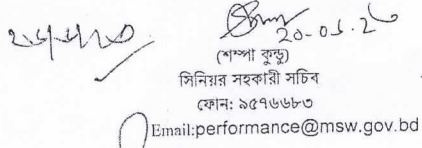 20-01-2
(শম্পা কুন্ডু)
সিনিয়র সহকারী সচিব
ফোন: ৯৫৭৬৬৮৩
Email:performance@msw.gov.bd